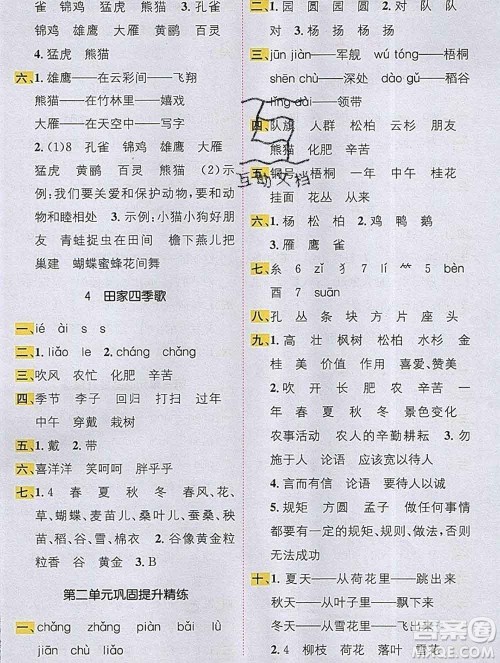 雀 锦鸡 雄鹰 大雁 熊猫 3. 孔雀
锦鸡 雄鹰 大雁 黄鹂 百灵
4. 猛虎 熊猫
六、1. 雄鹰——在云彩间——飞翔
熊猫——在竹林里——嬉戏
大雁——在天空中——写字
2. (1)8 孔雀 锦鸡 雄鹰 大雁
猛虎 黄鹂 百灵 熊猫 (2)示
例:我们要爱护和保护动物,要和动
物和睦相处 3. 示例:小猫小狗好朋
友 青蛙捉虫是农田 檐下燕儿把
巢建 蝴蝶蜜蜂花间舞
4 田家四季歌
一、ié ài s s
二、1. liǎo le 2. cháng chǎng
三、吹风 农忙 化肥 辛苦
四、季节 李子 了解 结果 过桥
中午 穿戴 栽树
五、1. 戴 2. 带
六、喜洋洋 笑呵呵 胖乎乎
七、1. 4 春 夏 秋 冬 春风、花、
草、蝴蝶、麦苗儿、桑叶儿、蚕桑、秧
苗、农事、谷像黄金、新雪
2. 谷像黄金粒
粒香 谷 黄金 3. B
第二单元巩固提升精练
一、chǎng zhǎng piàn bāi lǜ
二、1. 园 圆 园 圆 2. 对 队 队
对
三、jūn jiàn——军舰 wú tóng——梧桐
shēn chù——深处 dào gǔ——稻谷
lǐng dài——领带
四、队旗 人群 松柏 云杉 朋友
熊猫 化肥 辛苦
五、铜号 梧桐 一年 中午 桂花
挂面 花丛 从来
六、1. 杨 松 柏 2. 鸡 鸭 鹅
3. 雁 鹰 雀
七、糹 6 zǐ 犭 7 māo 艹 5 bèn
酉 7 suān
八、孔 丛 条 块 方 片 座 头
九、1. 高 壮 枫树 松柏 木棉 金
桂 美 价值 作用 喜爱、赞美
2. 吹 开 长 肥 农 辛苦
春 夏 秋 冬 景色变化
农事活动 农人的辛勤耕耘 3. 勿
施于人 论语 应该以诚待人
4. 言而有信 论语 说到做到
5. 规矩 方圆 孟子 做任何事
情都要有一定的规矩、规则,否则
无法成功
十、1. 夏天——从荷花里——跳出来
秋天——从叶子里——飘下来
2. 4 柳枝 荷花 落叶 雪花